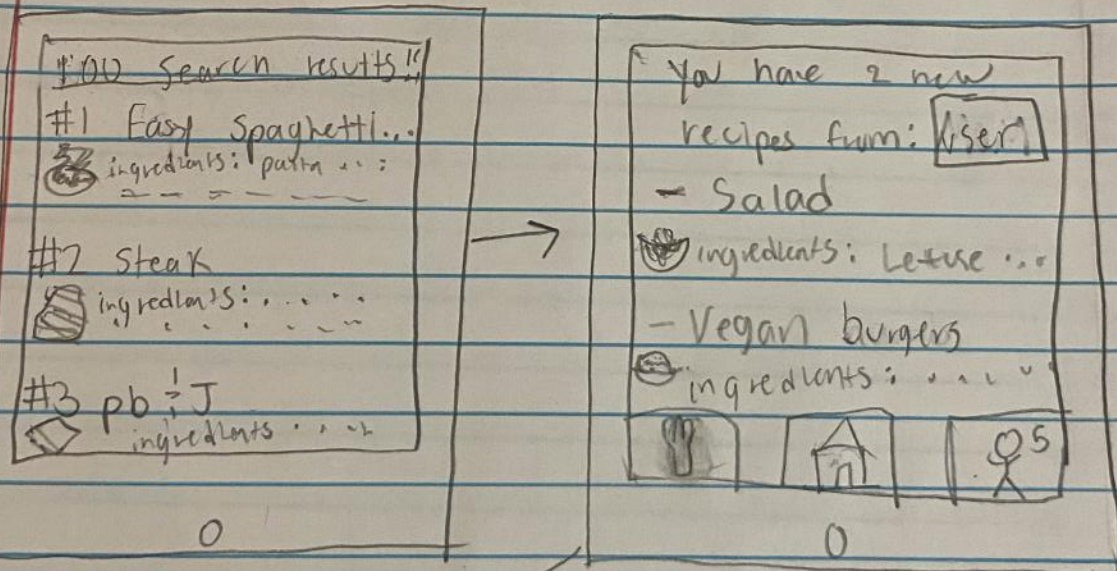 100 Search results!!
#1 Easy Spaghetti...
ingredients: pasta ...
#2 Steak
ingredients: . . . . .
#3 pb & J
ingredients . . .
You have 2 new
recipes from: User
- Salad
ingredients: Letuse ...
- Vegan burgers
ingredients: . . . .
5